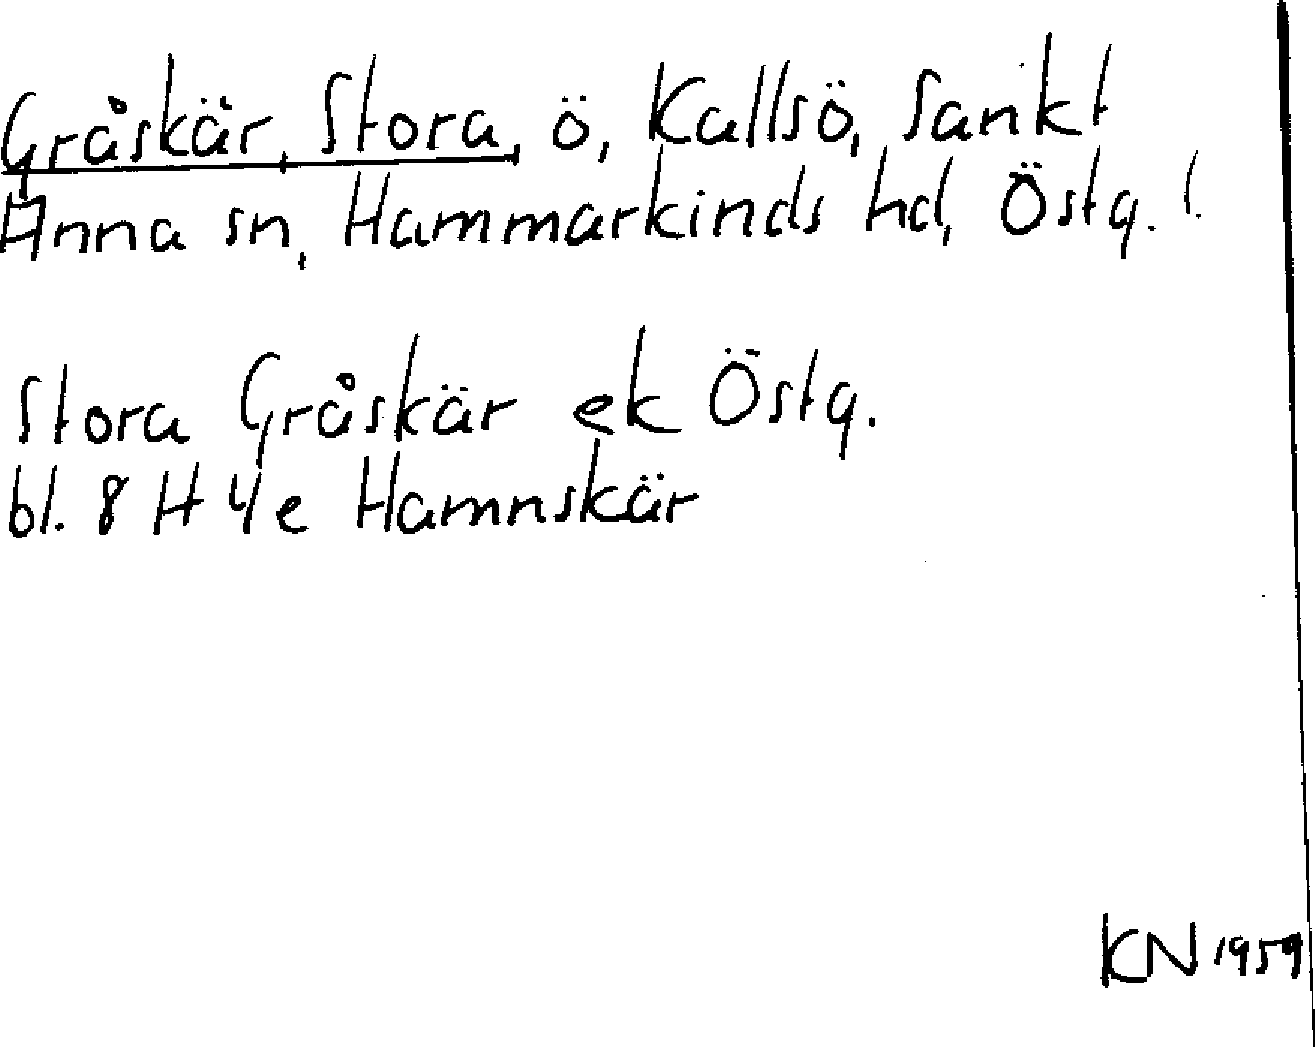 Gråskär, Stora, ö, Kallsö, Sankt
Anna sn, Hammarkinds hd, Östg. l.
Stora Gråskär ek Östg.
bl. 8 H 4e Hamnskär
KN 1959